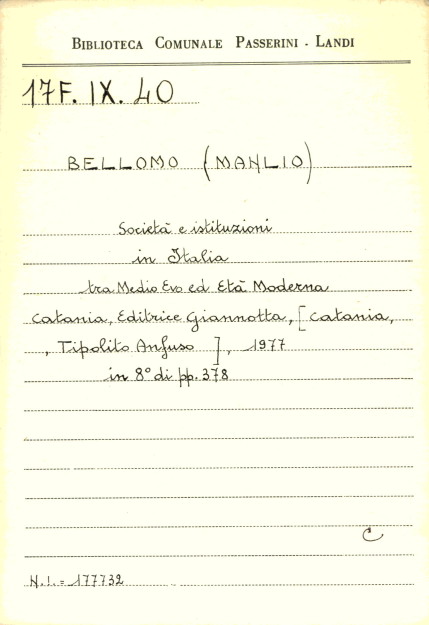 BIBLIOTECA COMUNALE PASSERINI - LANDI
17F. IX. 40
BELLOMO (MANLIO)
Società e istituzioni
in Italia
tra Medio Evo ed Età Moderna
Catania, Editrice Giannotta, [Catania,
, Tipolito Anfuso ], 1977
in 8° di pp. 378
C
N.I. = 177732